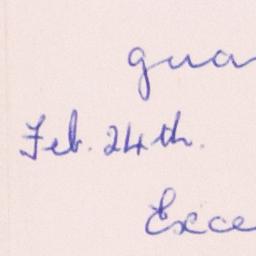 gua
Feb. 24th.
Exce